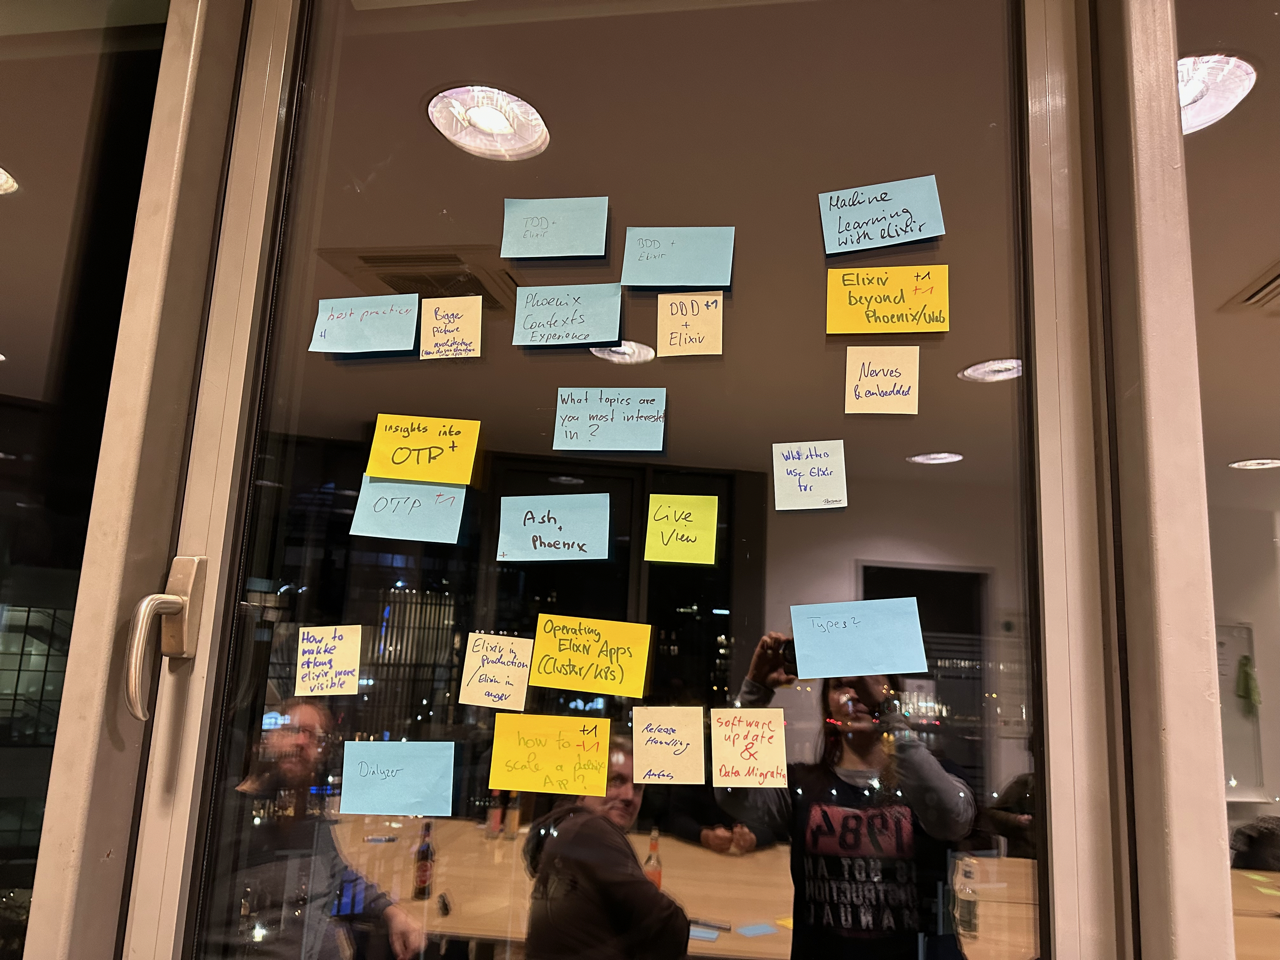 TDD +
Elixir
BDD +
Elixir
Machine
Learning
with Elixir
best practices
+1
Bigger
picture
architecture
Phoenix
Contexts
Experience
DDD +1
+
Elixir
Elixir +1
beyond +1
Phoenix/Web
Nerves
& embedded
What topics are
you most interested
in ?
insights into
OTP +
OTP +1
Ash +
Phoenix
+
Live
View
What others
use Elixir
for
How to
makke
erlang
elixir more
visible
Elixir in
Production
/Elixir in
anger
Operating
Elixir Apps
(Cluster/k8s)
Types?
Dialyzer
how to +1
scale a phoenix +1
App ?
Release
Handling
Software
update
&
Data Migration
1984
IS NOT AN
INSTRUCTION
MANUAL